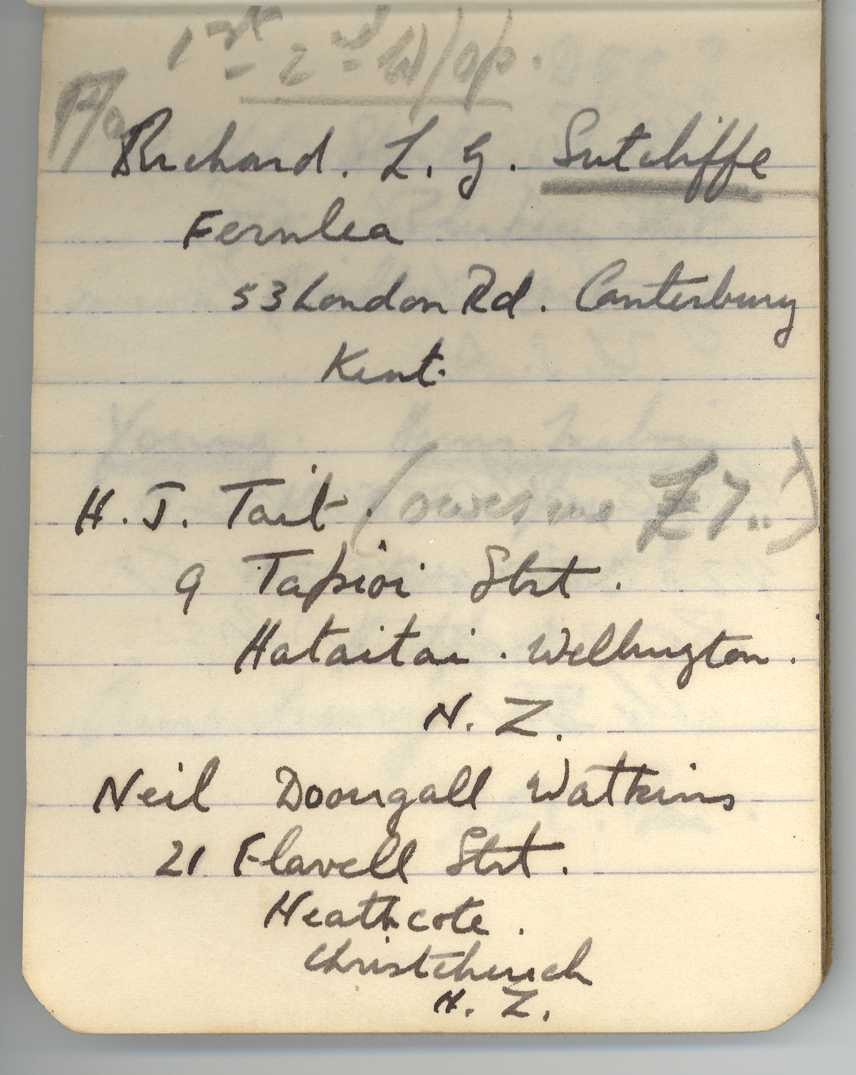 1st - 2nd W/op.
P/O
Richard. L. G. Sutcliffe
Fernlea
53 London Rd. Canterbury
Kent.
H. J. Tait. (owes me £7..)
9 Tapiri Strt.
Hataitai. Wellington.
N. Z.
Neil Doougall Watkins
21 Flavell Strt.
Heathcote.
Christchurch
N. Z.